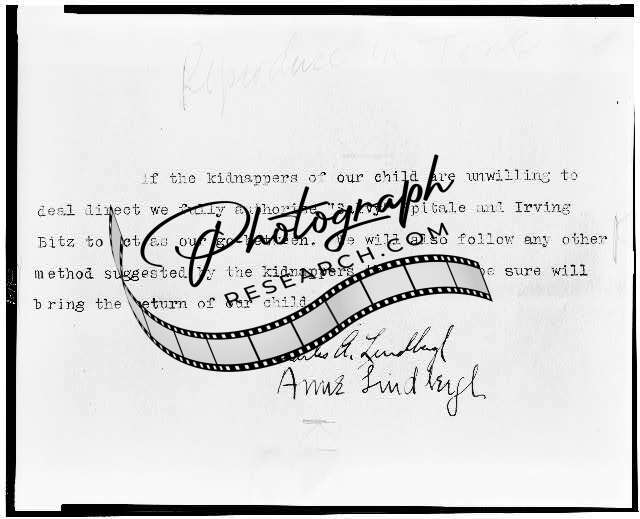 Reproduce in Tone
If the kidnappers of our child are unwilling to
deal direct we fully authorize "Salvy" Spitale and Irving
Bitz to act as our go-between. We will also follow any other
method suggested by the kidnappers be sure will
bring the return of our child
Photograph
RESEARCH.COM
A. Lindbergh
Anne Lindbergh